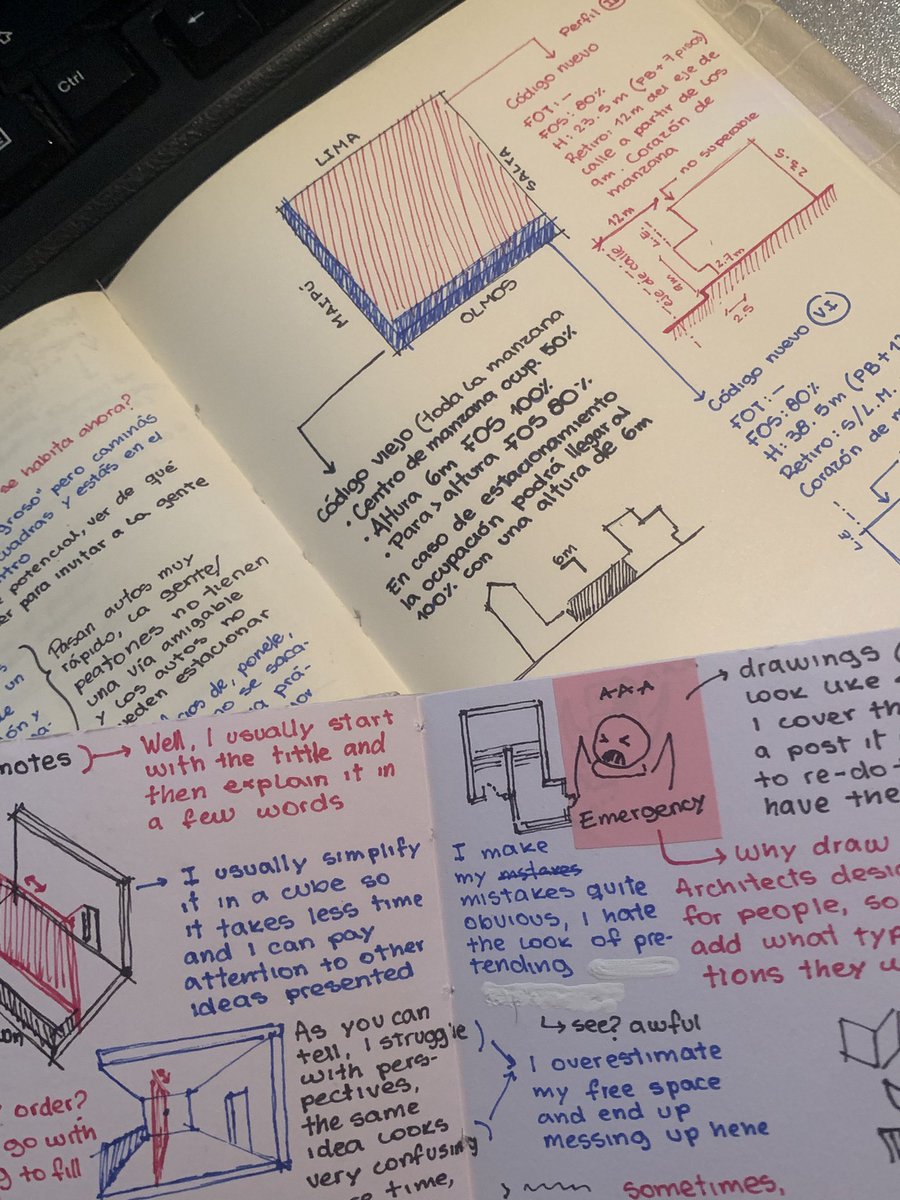 Ctrl
Perfil II
Código nuevo
FOT: -
FOS: 80%
H: 23.5 m (PB + 7 pisos)
Retiro: 12m del eje de
calle a partir de los
9m. Corazón de
manzana
no superable
23.5
12m
L.E.
eje de calle
9m
2.7m
2.5
LIMA
SALTA
MAIPÚ
OLMOS
código viejo (toda la manzana
• Centro de manzana ocup. 50%
• Altura 6m FOS 100%
• Para > altura FOS 80%
En caso de estacionamiento
la ocupación podrá llegar al
100% con una altura de 6m
6m
Código nuevo VI
FOT: -
FOS: 80%
H: 38.5 m (PB + 12
Retiro: S/L.M.
Corazón de m
se habita ahora?
groso" pero caminás
cuadras y estás en el
ntro
potencial, ver de qué
er para invitar a la gente
Pasan autos muy
rápido, la gente/
peatones no tienen
una vía amigable
y los autos no
ueden estacionar
un
ios de, ponele,
no se saca-
a prá-
ión y
notes
Well, I usually start
with the tittle and
then explain it in
a few words
I usually simplify
it in a cube so
it takes less time
and I can pay
attention to other
ideas presented
As you can
tell, I struggle
with pers-
pectives,
the same
idea looks
very confusing
time,
order?
go with
g to fill
A-A-A
Emergency
drawings (
look like
I cover th
a post it
to re-do
have the
I make
my mistakes
mistakes quite
obvious, I hate
the look of pre-
tending
Why draw
Architects desig
for people, so
add what typ
tions they u
see? awful
I overestimate
my free space
and end up
messing up here
sometimes,